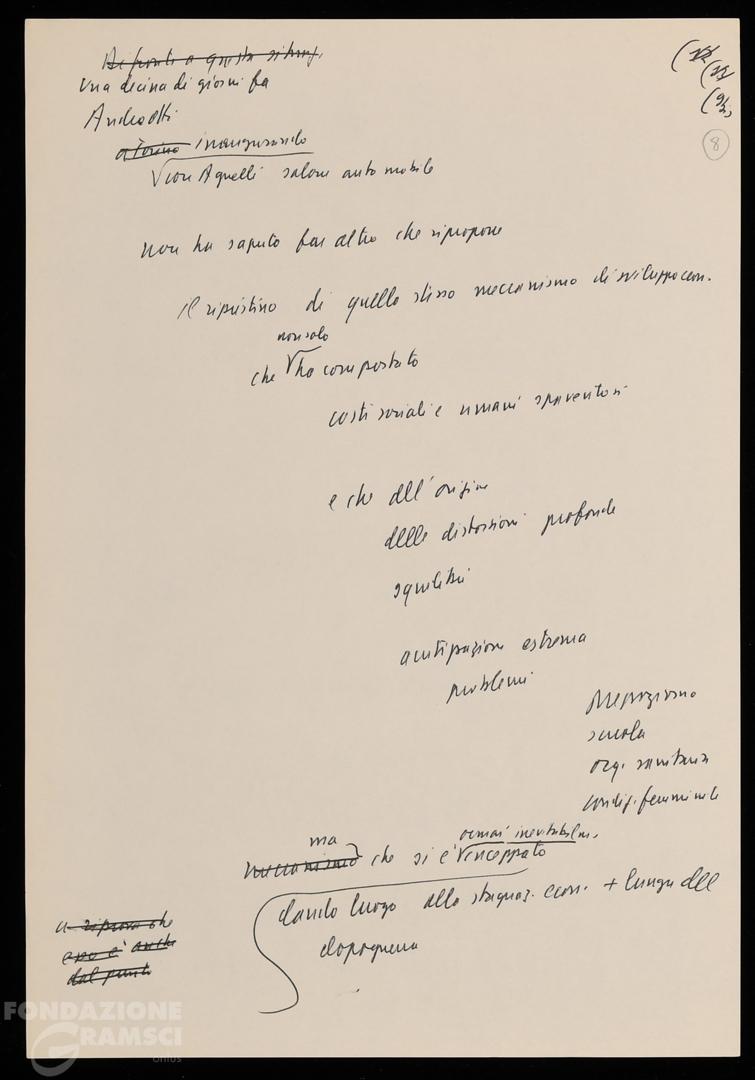 Di fronte a questa situaz.
Una decina di giorni fa
Andreotti
a Torino inaugurando
con Agnelli salone automobile
8
non ha saputo far altro che riproporre
il ripristino di quello stesso meccanismo di sviluppo econ.
non solo
che ha comportato
costi sociali e umani spaventosi
e che all'origine
delle distorsioni profonde
squilibri
acutizzazione estrema
problemi
Mezzogiorno
scuola
org. sanitaria
condiz. femminile
ma ormai inevitabilm.
meccanismo che si è inceppato
dando luogo alla stagnaz. econ. + lunga del
dopoguerra
a riprova che
esso è anche
dal punto
FONDAZIONE
GRAMSCI
onlus